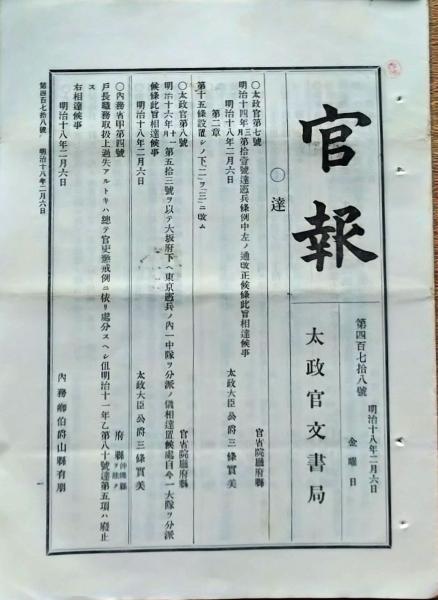 官報
第四百七拾八號
明治十八年二月六日
金曜日
太政官文書局
○達
○太政官第七號
官省院廳府縣
明治十四年三月第拾壹號達憲兵條例中左ノ通改正候條此旨相達候事
明治十八年二月六日
太政大臣公爵三條實美
第二章
第十五條設置シノ下「二」ヲ「三」ニ改ム
○太政官第八號
官省院廳府縣
明治十六年十一月第五十三號ヲ以テ大坂府下ヘ東京憲兵ノ内一中隊ヲ分派ノ儀相達置候處自今一大隊ヲ分派
候條此旨相達候事
明治十八年二月六日
太政大臣公爵三條實美
○內務省甲第四號
府縣 沖繩縣ヲ除ク
戶長職務取扱上過失アルトキハ總テ官吏懲戒例ニ依リ處分スヘシ但明治十一年乙第八十號達第五項ハ廢止
ス
右相達候事
明治十八年二月六日
內務卿伯爵山縣有朋
第四百七拾八號 明治十八年二月六日